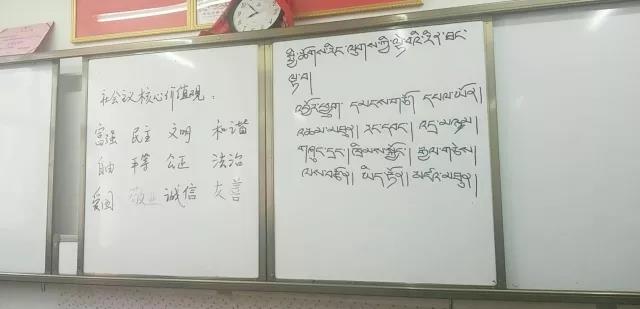 社会议核心价值观：
富强 民主 文明 和谐
自由 平等 公正 法治
爱国 敬业 诚信 友善
སྤྱི་ཚོགས་རིང་ལུགས་ཀྱི་ལྟེ་བའི་རིན་ཐང་
ལྟ་བ།
འབྱོར་ཕྱུག དམངས་གཙོ དཔལ་ཡོན།
འཆམ་མཐུན། རང་དབང་། འདྲ་མཉམ།
གཞུང་དྲང་། ཁྲིམས་སྐྱོང་། རྒྱལ་གཅེས།
ལས་བརྩོན། ཡིད་རྟོན། མཛའ་མཐུན།